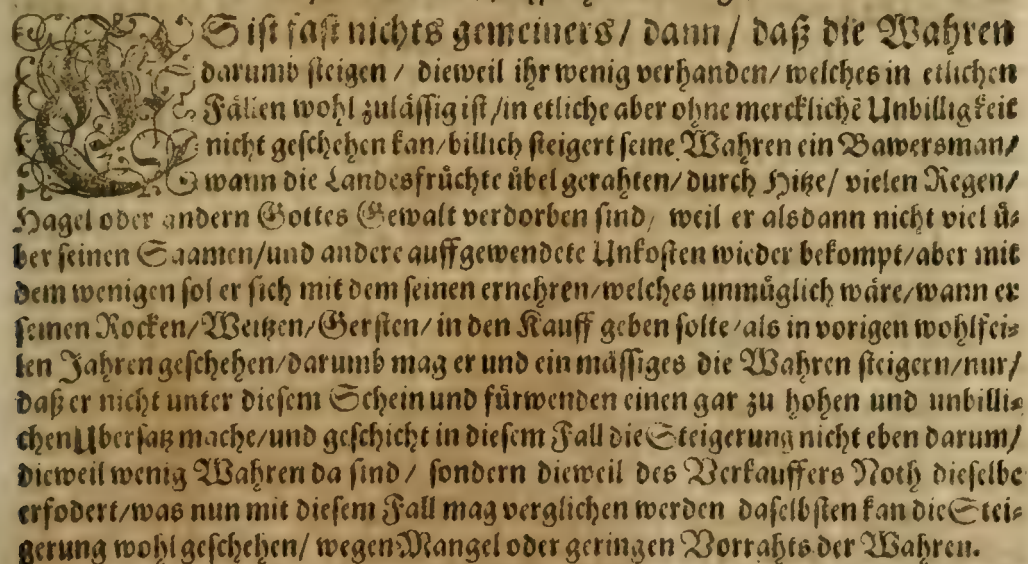 ES ist fast nichts gemeiners / dann / daß die Wahren
darumb steigen / dieweil ihr wenig verhanden / welches in etlichen
Fällen wohl zulässig ist / in etliche aber ohne merckliche̅ Unbilligkeit
nicht geschehen kan / billich steigert seine Wahren ein Bawersman /
wann die Landesfrüchte übel gerahten / durch Hitze / vielen Regen /
Hagel oder andern Gottes Gewalt verdorben sind / weil er alsdann nicht viel ü-
ber seinen Saamen / und andere auffgewendete Unkosten wieder bekompt / aber mit
dem wenigen sol er sich mit dem seinen ernehren / welches unmüglich wäre / wann er
seinen Rocken / Weitzen / Gersten / in den Kauff geben solte / als in vorigen wohlfei-
len Jahren geschehen / darumb mag er und ein mässiges die Wahren steigern / nur /
daß er nicht unter diesem Schein und fürwenden einen gar zu hohen und unbilli-
chen Ubersatz mache / und geschicht in diesem Fall die Steigerung nicht eben darum /
dieweil wenig Wahren da sind / sondern dieweil des Verkauffers Noth dieselbe
erfodert / was nun mit diesem Fall mag verglichen werden daselbsten kan die Stei-
gerung wohl geschehen / wegen Mangel oder geringen Vorrahts der Wahren.